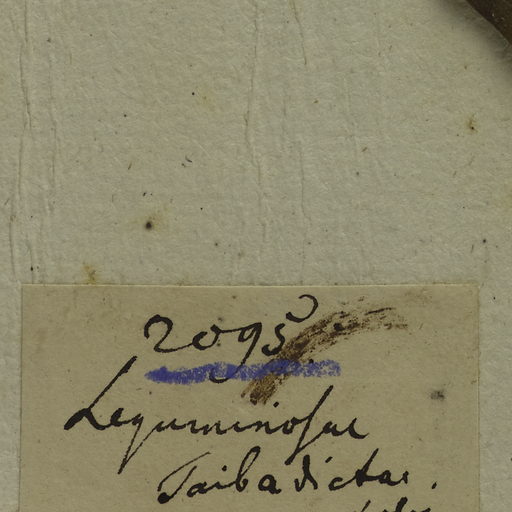 2095.
Leguminosae
Taiba dictae.